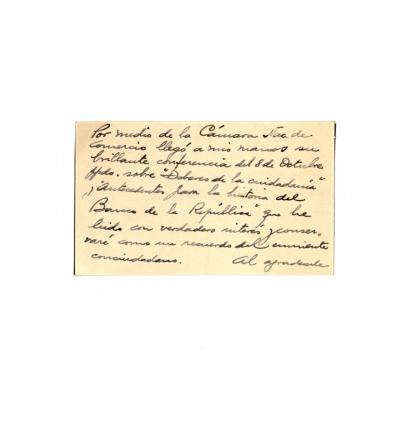 Por medio de la Cámara Nac. de
Comercio llegó a mis manos su
brillante conferencia del 8 de Octubre
ppdo. sobre "Deberes de la ciudadanía"
y "Antecedentes para la historia del
Banco de la República" que he
leido con verdadero interés y conser-
varé como un recuerdo del eminente
conciudadano. Al agradecerle